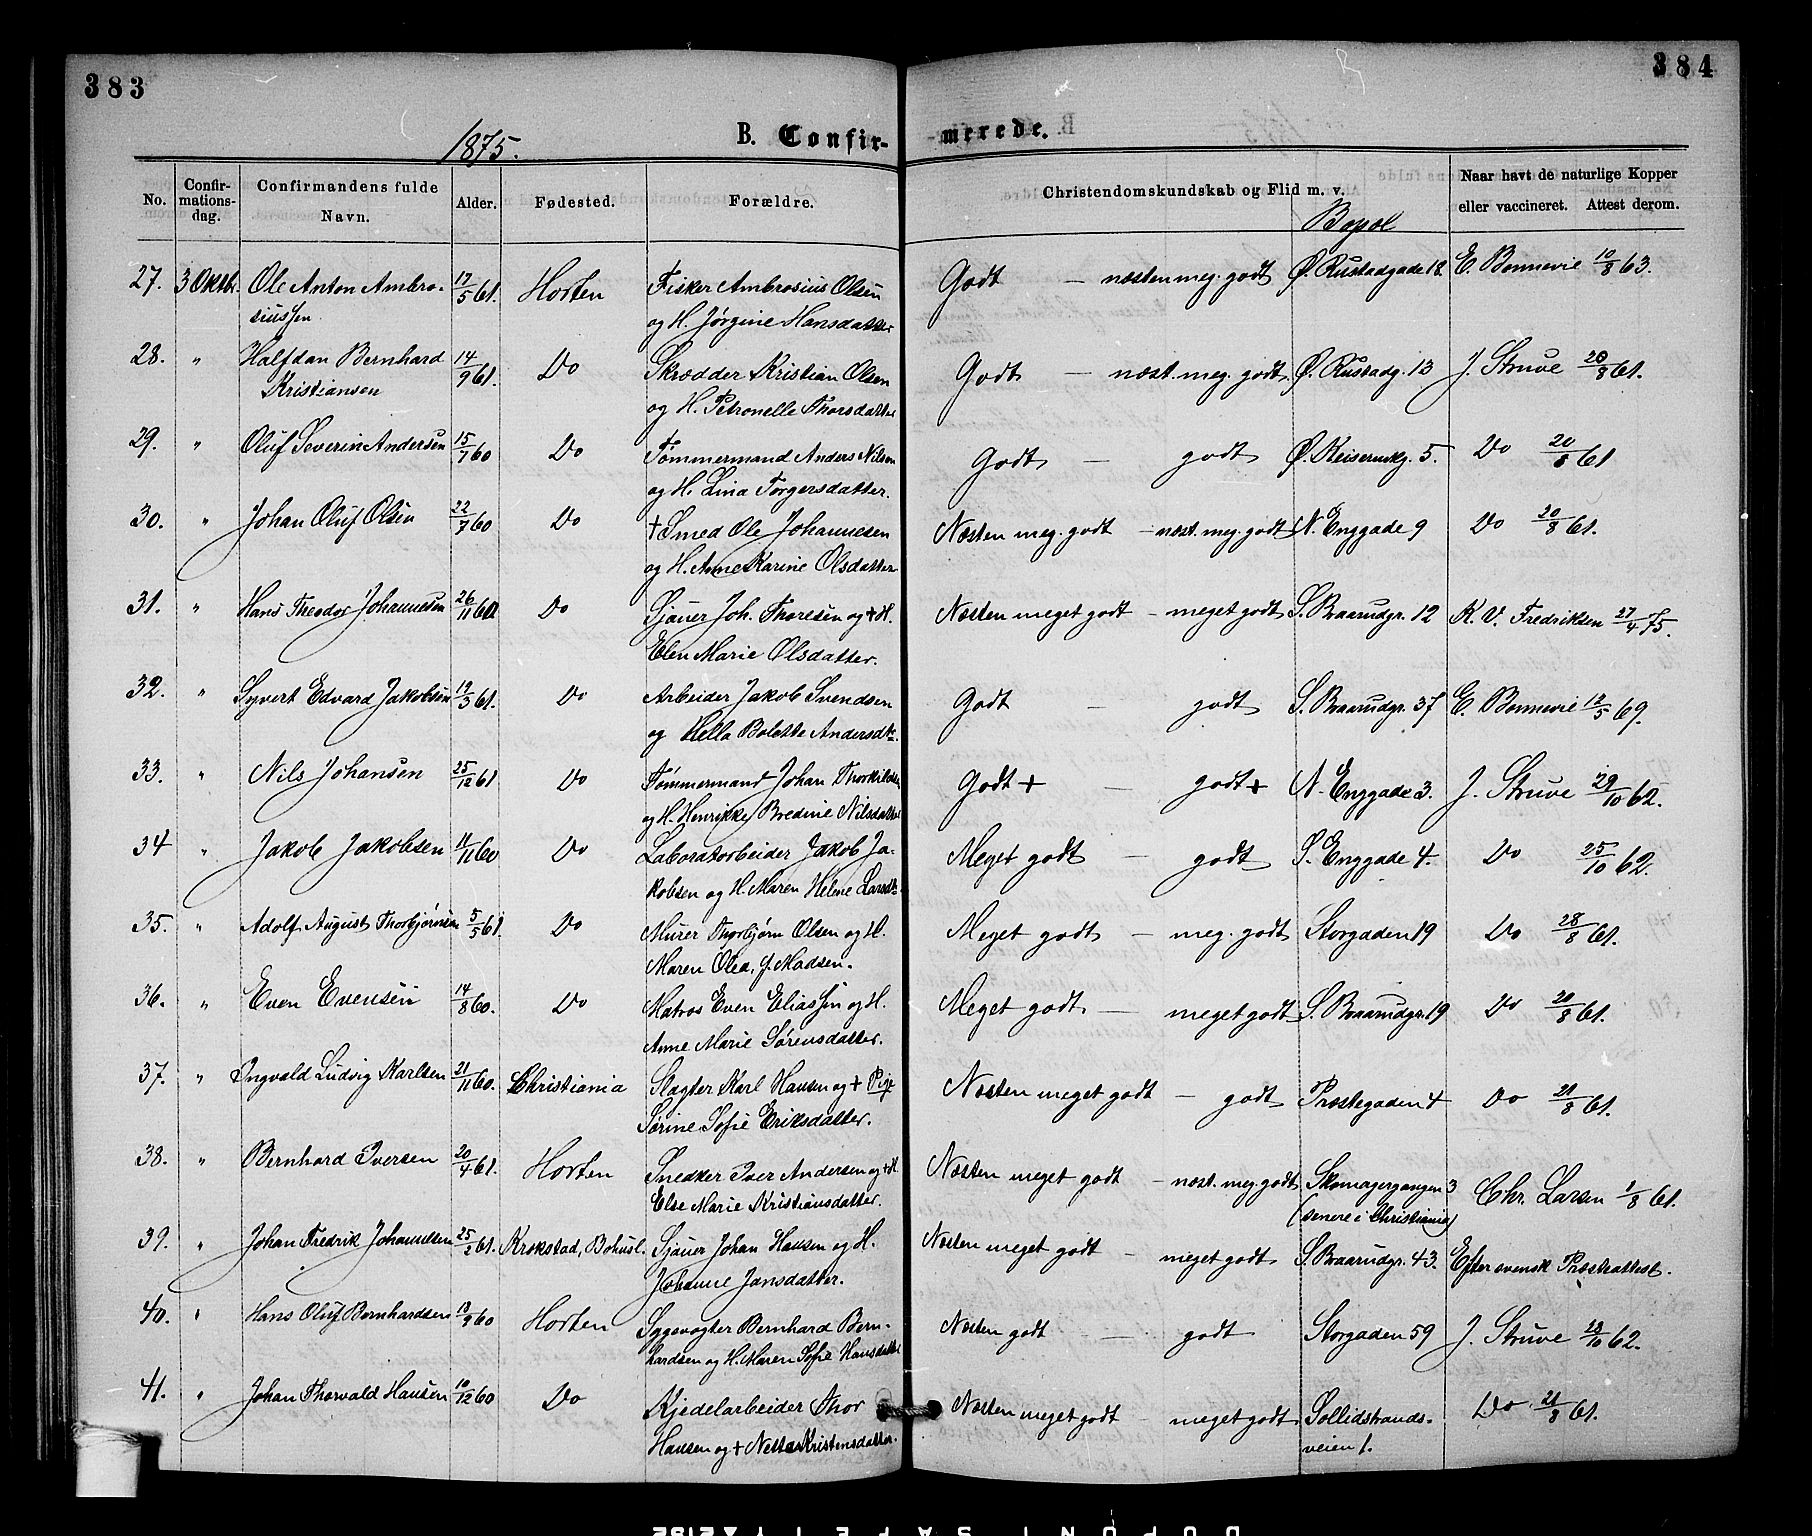 383
384
1875.
B. Confir-
merede.
No.
Confir-
mations-
dag.
Confirmandens fulde
Navn.
Alder.
Fødested.
Forældre.
Christendomskundskab og Flid m. v.
Bopæl
Naar havt de naturlige Kopper
eller vaccineret. Attest derom.
27. 3 Oktbr. Ole Anton Ambro- 17/5 61. Horten Fisker Ambrosius Olsen Godt — næsten meg. godt Ø. Rustadgade 18. E. Bonnevie 10/8 63.
siussen og H. Jørgine Hansdatter
28. " Halfdan Bernhard 14/9 61. Do Skrædder Kristian Olsen Godt — næst. meg. godt Ø. Rustadg. 13 J. Struve 20/8 61.
Kristiansen og H. Petronelle Thorsdatter
29. " Oluf Severin Andersen 15/7 60 Do Tømmermand Anders Nilsen Godt — godt Ø. Keisemkg. 5. Do 20/8 61
og H. Lina Torgersdatter.
30. " Johan Oluf Olsen 22/7 60 Do + Smed Ole Johannesen Næsten meg. godt — næst. meg. godt N. Enggade 9 Do 20/8 61.
og H. Anne Karine Olsdatter
31. " Hans Theodor Johannesen 26/11 60. Do Sjauer Joh. Thoresen og + H. Næsten meget godt — meget godt S. Braarudgr. 12 K. V. Fredriksen 27/4 75.
Elen Marie Olsdatter.
32. " Syvert Edvard Jakobsen 19/3 61. Do Arbeider Jakob Svendsen Godt — godt S. Braarudgr. 37 E. Bonnevie 12/5 69.
og Hella Bolette Andersdtr.
33. " Nils Johansen 25/12 61 Do Tømmermand Johan Thorkildsen Godt + — godt + N. Enggade 3. J. Struve 29/10 62.
og H. Henrikke Bredine Nilsdatter
34 " Jakob Jakobsen 11/11 60 Do Laboratorbeider Jakob Ja- Meget godt — godt S. Enggade 4. Do 25/10 62.
kobsen og H. Maren Helene Larsdtr.
35. " Adolf August Thorbjørnsen 5/5 61. Do Murer Thorbjørn Olsen og H. Meget godt — meg. godt Storgaden 19 Do 28/8 61.
Maren Olea, f. Madsen.
36. " Even Evensen 14/8 60. Do Matros Even Eliassen og H. Meget godt — meget godt S. Braarudgr. 19 Do 20/8 61.
Anne Marie Sørensdatter.
37. " Ingvald Ludvig Karlsen 21/11 60. Christiania Slagter Karl Hansen og + Pige Næsten meget godt — godt Præstegaden 4 Do 21/8 61.
Serine Sofie Eriksdatter.
38. " Bernhard Iversen 20/4 61. Horten Snedker Iver Andersen og + H. Næsten meget godt — næst. meg. godt Skomagergangen 3 Chr. Larsen 1/8 61.
Else Marie Kristiansdatter. (senere i Christiania)
39. " Johan Fredrik Johannesen 25/2 61. Krokstad, Bohusl. Sjauer Johan Hansen og H. Næsten meget godt — meget godt S. Braarudgr. 43. Efter svensk Præsteattest.
Johanne Jansdatter.
40. " Hans Oluf Bernhardsen 18/9 60 Horten Sygevogter Bernhard Bern- Næsten godt — godt Storgaden 59 J. Struve 28/10 62.
hardsen og H. Maren Sofie Hansdatter
41. " Johan Thorvald Hansen 10/12 60 Do Kjedelarbeider Thor Næsten meget godt — meget godt Sollidstrands- Do 21/8 61.
Hansen og + Netta Kristensdatter. veien 1.